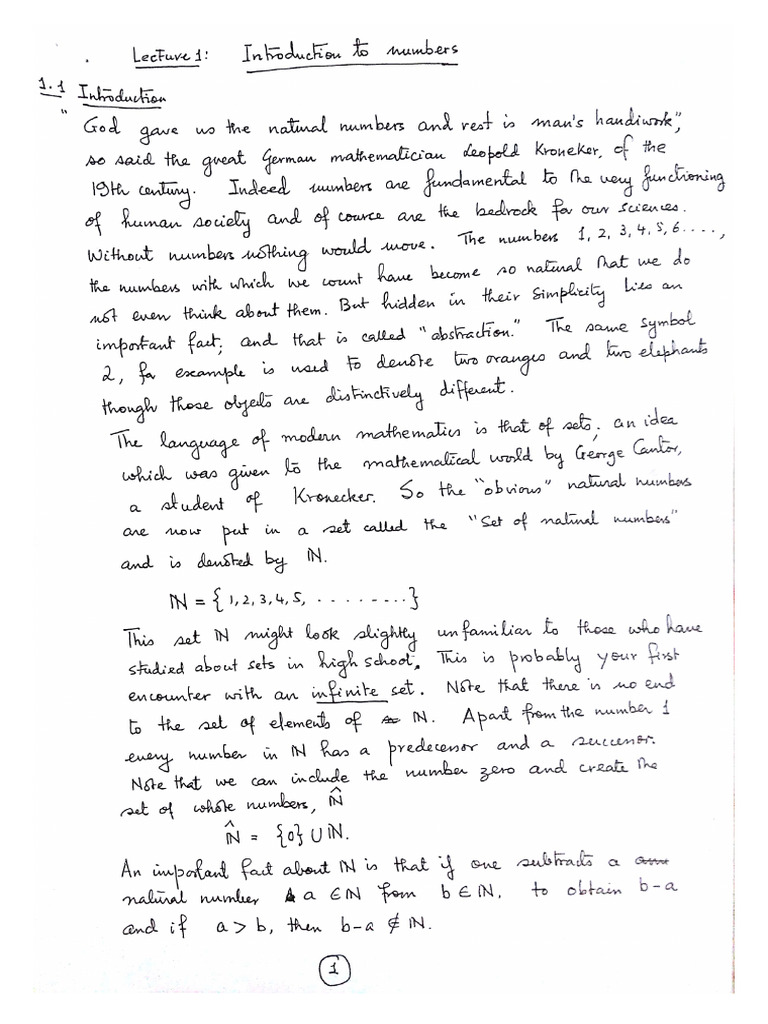 Lecture 1: Introduction to numbers
1.1 Introduction
"God gave us the natural numbers and rest is man's handiwork",
so said the great German mathematician Leopold Kroneker, of the
19th century. Indeed numbers are fundamental to the very functioning
of human society and of cource are the bedrock for our sciences.
Without numbers nothing would move. The numbers 1, 2, 3, 4, 5, 6 ....,
the numbers with which we count have become so natural that we do
not even think about them. But hidden in their simplicity lies an
important fact; and that is called "abstraction." The same symbol
2, for example is used to denote two oranges and two elephants
though those objects are distinctively different.
The language of modern mathematics is that of sets; an idea
which was given to the mathematical world by George Cantor,
a student of Kronecker. So the "obvious" natural numbers
are now put in a set called the "Set of natural numbers"
and is denoted by ℕ.
ℕ = { 1, 2, 3, 4, 5, ......... }
This set ℕ might look slightly unfamiliar to those who have
studied about sets in high school. This is probably your first
encounter with an infinite set. Note that there is no end
to the set of elements of ℕ. Apart from the number 1
every number in ℕ has a predecessor and a successor.
Note that we can include the number zero and create the
set of whole numbers, ℕ̂
ℕ̂ = {0} ∪ ℕ.
An important fact about ℕ is that if one subtracts a
natural number a ∈ ℕ from b ∈ ℕ, to obtain b-a
and if a > b, then b-a ∉ ℕ.
1